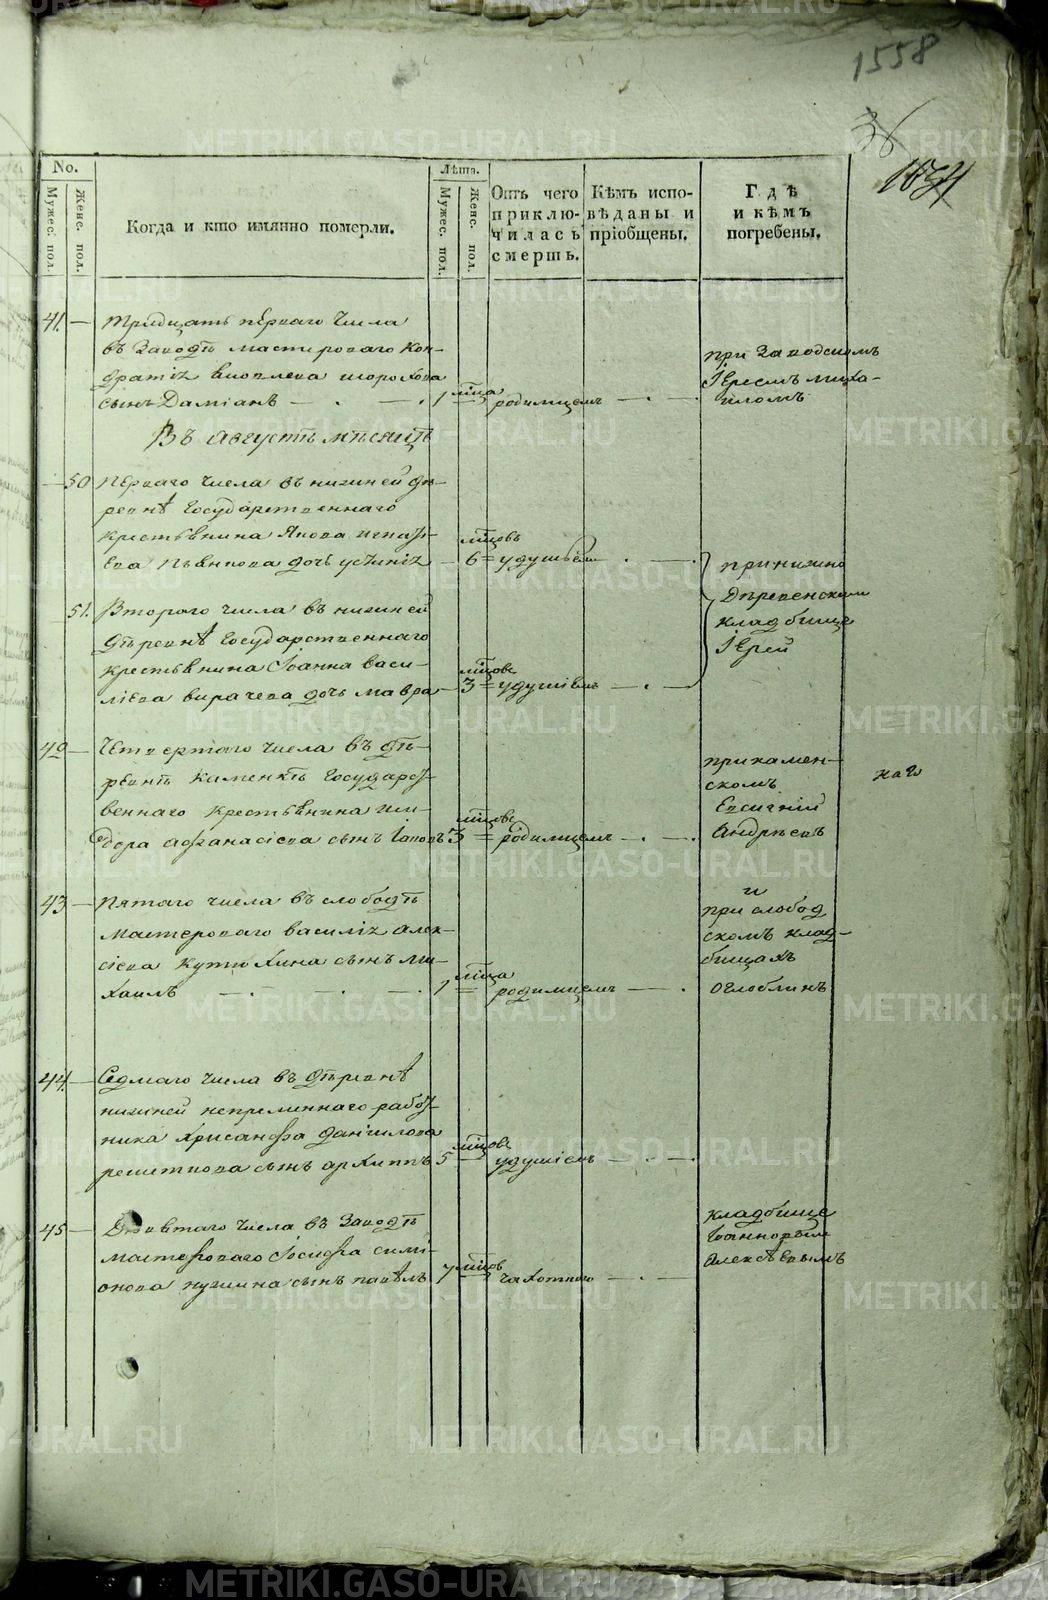 1558
36
1034
No.
Мужес. пол.
Женс. пол.
Когда и кто имянно померли.
Лѣта.
Мужес. пол.
Женс. пол.
Отъ чего
приклю-
чилась
смерть.
Кѣмъ испо-
вѣданы и
пріобщены.
Гдѣ
и кѣмъ
погребены.
41.
Тридцать перваго числа
въ Заводѣ мастероваго Кон-
дратія
сынъ Даміанъ
1 мѣсяца
родимцемъ
при Заводскомъ
Іереемъ Миха-
иломъ
Въ Августѣ мѣсяцѣ
50
Перваго числа въ нижней де-
ревнѣ Государственнаго
крестьянина Якова
дочь
6 мѣсяцовъ
удушьемъ
при нижно
Деревенскомъ
кладбищѣ
Іерей
51.
Втораго числа въ нижней
деревнѣ Государственнаго
крестьянина Іоанна Васи-
ліева Вирачева дочь Мавра
3 мѣсяцовъ
удушіемъ
42
Четвертаго числа въ де-
ревнѣ Каменкѣ Государст-
веннаго крестьянина
Афанасіева сынъ
3 мѣсяцовъ
родимцемъ
при камен-
скомъ
Евсигній
Андреевъ
наго
43
Пятаго числа въ слободѣ
мастероваго Василія Алек-
сіева Кутюхина сынъ Ми-
хаилъ
1 мѣсяца
родимцемъ
и
при слобод
скомъ клад-
бищахъ
Оглоблинъ
44.
Седмаго числа въ деревнѣ
нижней непременнаго работ-
ника Хрисанфа Даніилова
Решеткова сынъ Архиппъ
5 мѣсяцовъ
удушіемъ
45
Девятаго числа въ Заводѣ
мастероваго Іосифа Симі-
онова сынъ Павелъ
7 мѣсяцовъ
чахотного
кладбище
Алексѣевымъ
METRIKI.GASO-URAL.RU